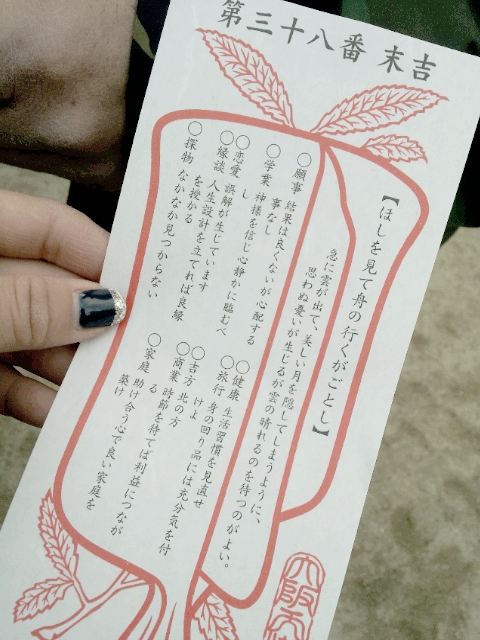 第三十八番 末吉
【ほしを見て舟の行くがごとし】
急に雲が出て、美しい月を隠してしまうように、
思わぬ憂いが生じるが雲の晴れるのを待つのがよい。
○願事 結果は良くないが心配する
事なし
○学業 神様を信じ心静かに臨むべ
し
○恋愛 誤解が生じています
○縁談 人生設計を立てれば良縁
を授かる
○探物 なかなか見つからない
○健康 生活習慣を見直せ
○旅行 身の回り品には充分気を付
けよ
○吉方 北の方
○商業 時節を待てば利益につなが
る
○家庭 助け合う心で良い家庭を
築け